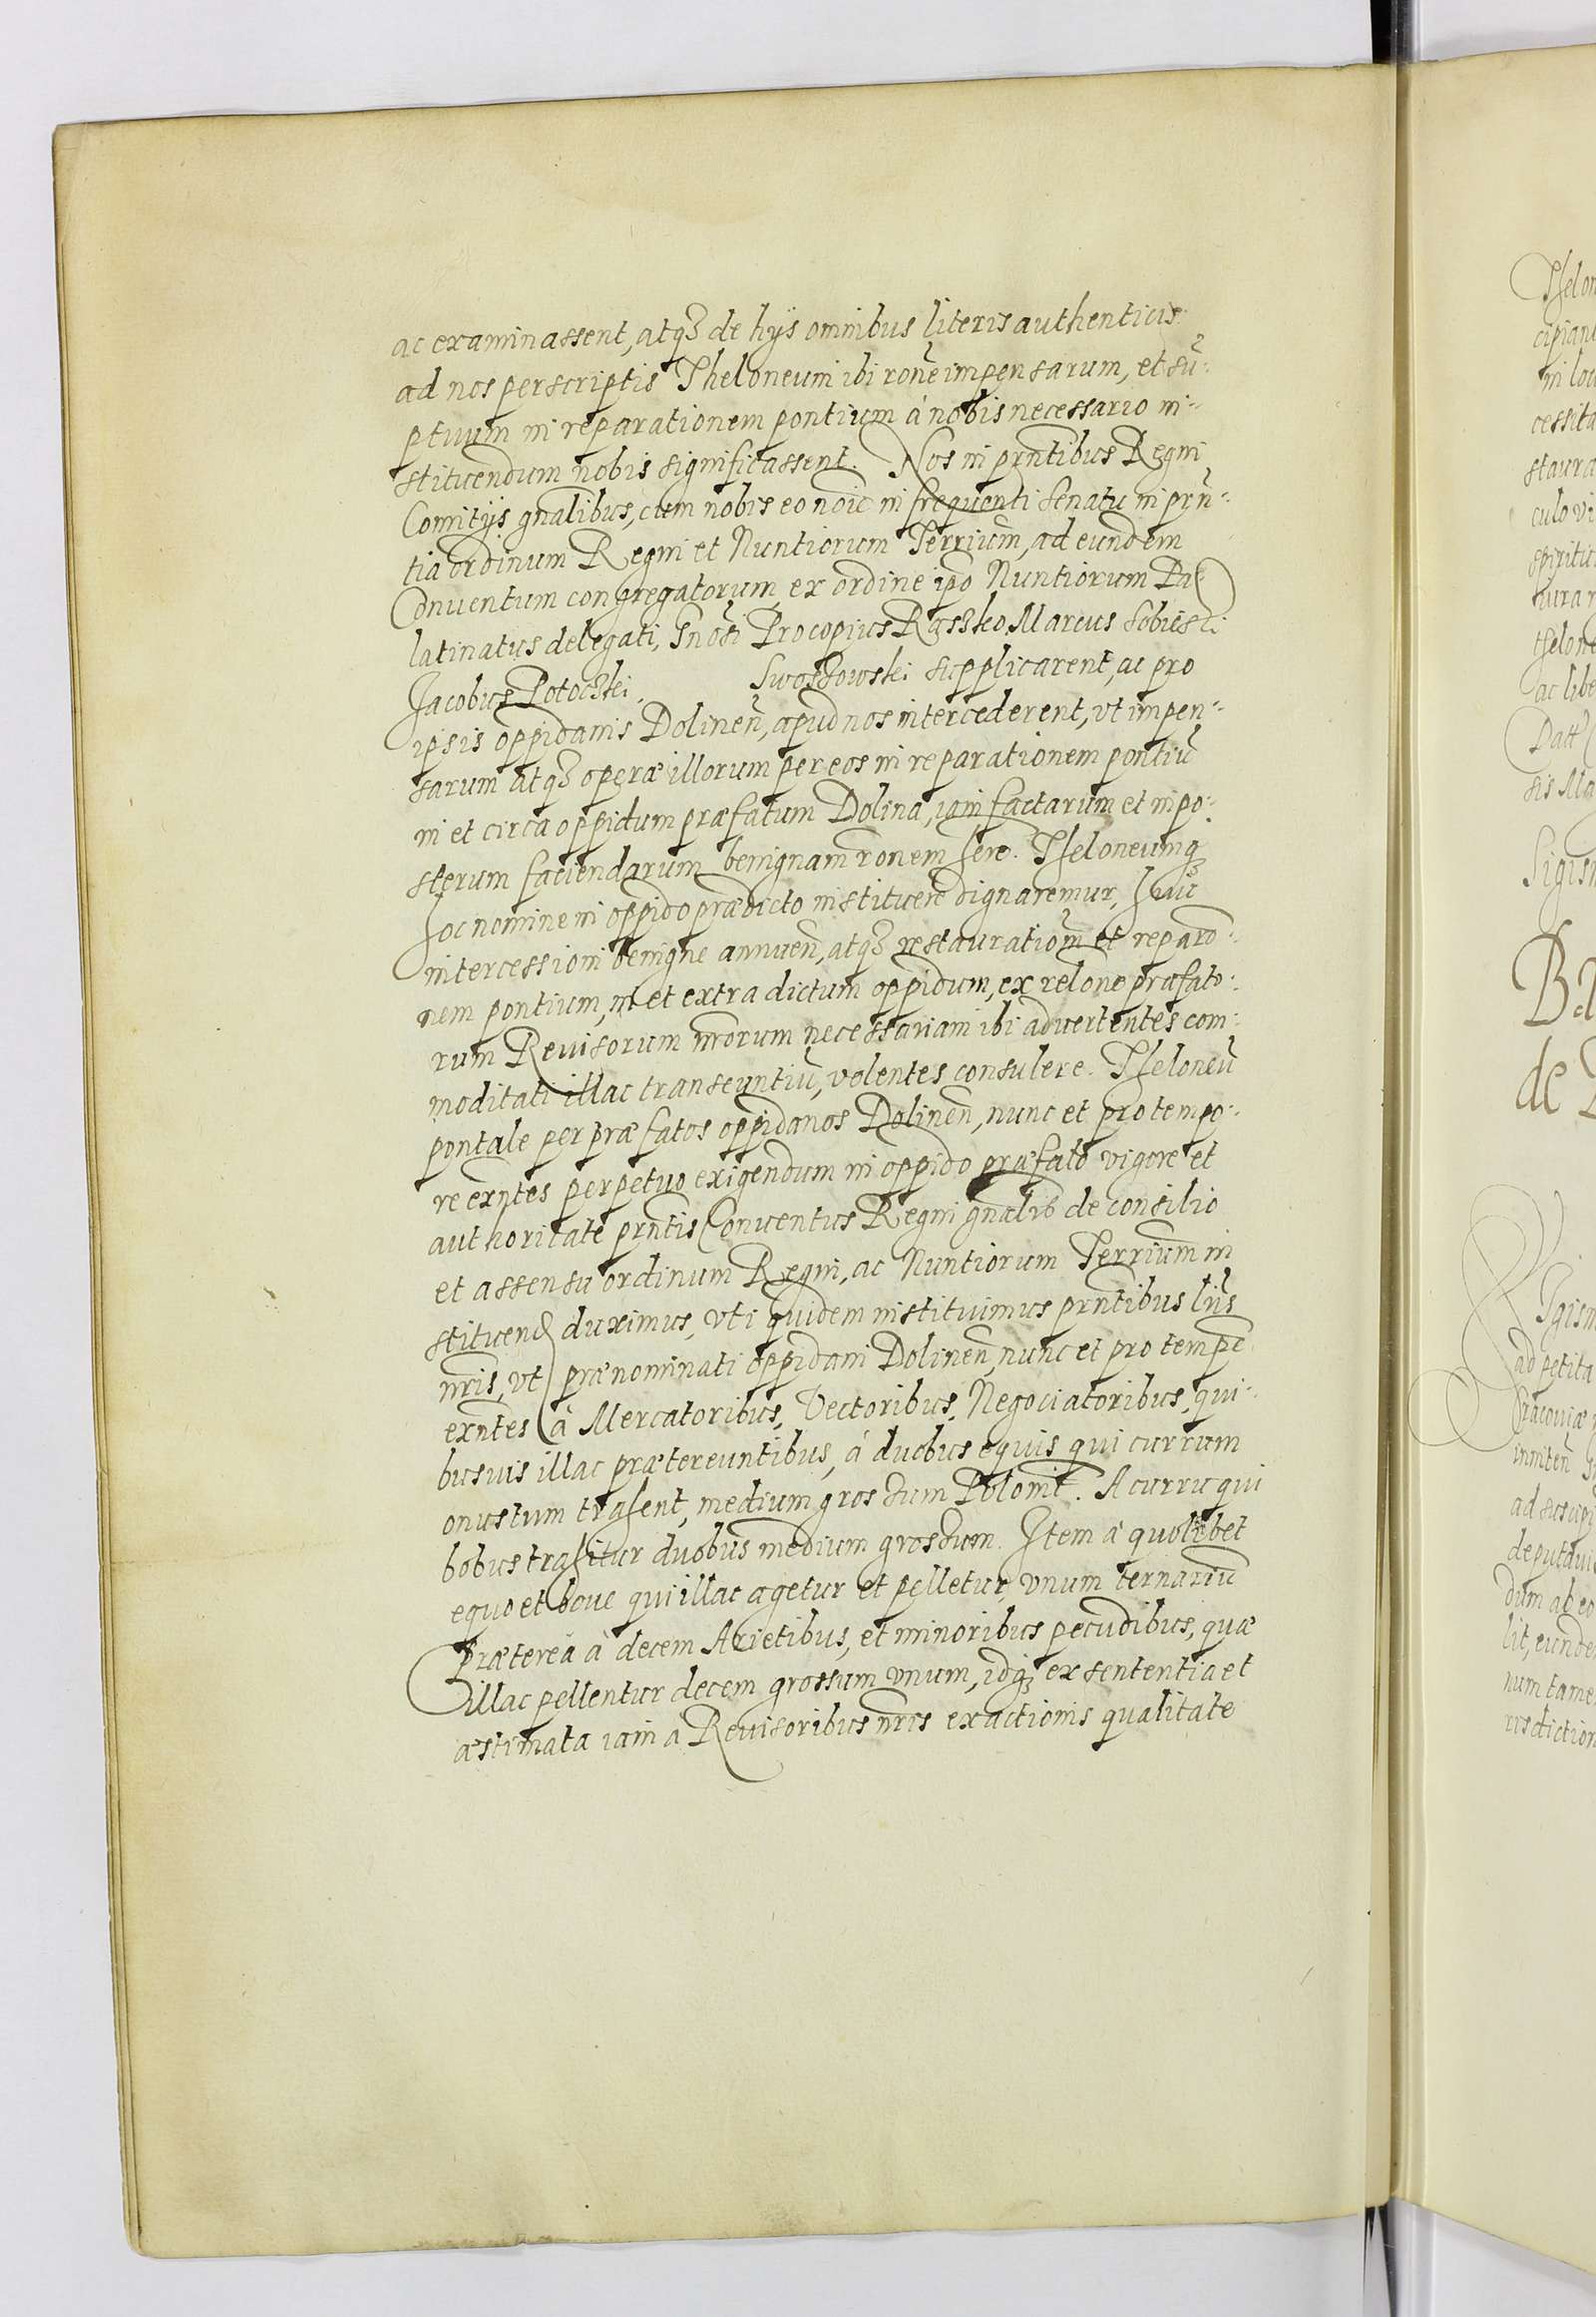 ac examinassent, atqȝ de hÿs omnibus literis authenticis
ad nos perscriptis Theloneum ibi rone impensarum, et sũ:
ptuum in reparationem pontium à nobis necessario in:
stituendum nobis significassent. Nos in prñtibus Regni
Comitÿs gnalibus, cum nobis eo noie in frequenti Senatu in prñ:
tia ordinum Regni et Nuntiorum Terrium, ad eundem
Conuentum congregatorum, ex ordine ipo Nuntiorum Pa
latinatus delegati, Procopius Marcus Sobieski
Jacobus Potoczki, supplicarent, ac pro
ipsis oppidanis Dolineñ, apud nos intercederent, vt impen:
sarum atqȝ operæ illorum per eos in reparationem pontiũ
in et circa oppidum præfatum Dolina, iam factarum et in po:
sterum faciendarum benignam ronem here. Theloneumqȝ
hoc nomine in oppido prædicto instituere dignaremur, huic
intercessioni benigne annueñ, atqȝ restauratiom et reparo:
nem pontium, in et extra dictum oppidum, ex relone præfato:
rum Reuisorum nrorum necessariam ibi aduertentes com:
moditati illac transeuntiũ, volentes consulere. Theloneũ
pontale per præfatos oppidanos Dolineñ, nunc et pro tempo:
re exñtes perpetuo exigendum in oppido præfato vigore et
authoritate prñtis Conuentus Regni gnalis de consilio
et assensu ordinum Regni, ac Nuntiorum Terrium in
stituend duximus, vti quidem instituimus prñtibus lris
nris, vt prænominati oppidani Dolineñ, nunc et pro tempe
exñtes à Mercatoribus, Vectoribus, Negociatoribus, qui:
busuis illac prætereuntibus, à duobus equis qui currum
onustum trahent, medium grossum Polonic. A curru qui
bobus trahitur duobus medium grossum. Item à quolibet
equo et boue qui illac agetur et pelletur, vnum ternariũ
Præterea à decem Arietibus, et minoribus pecudibus, quæ
illac pellentur decem grossum vnum, idqȝ ex sententia et
æstimata iam à Reuisoribus nris exactionis qualitate